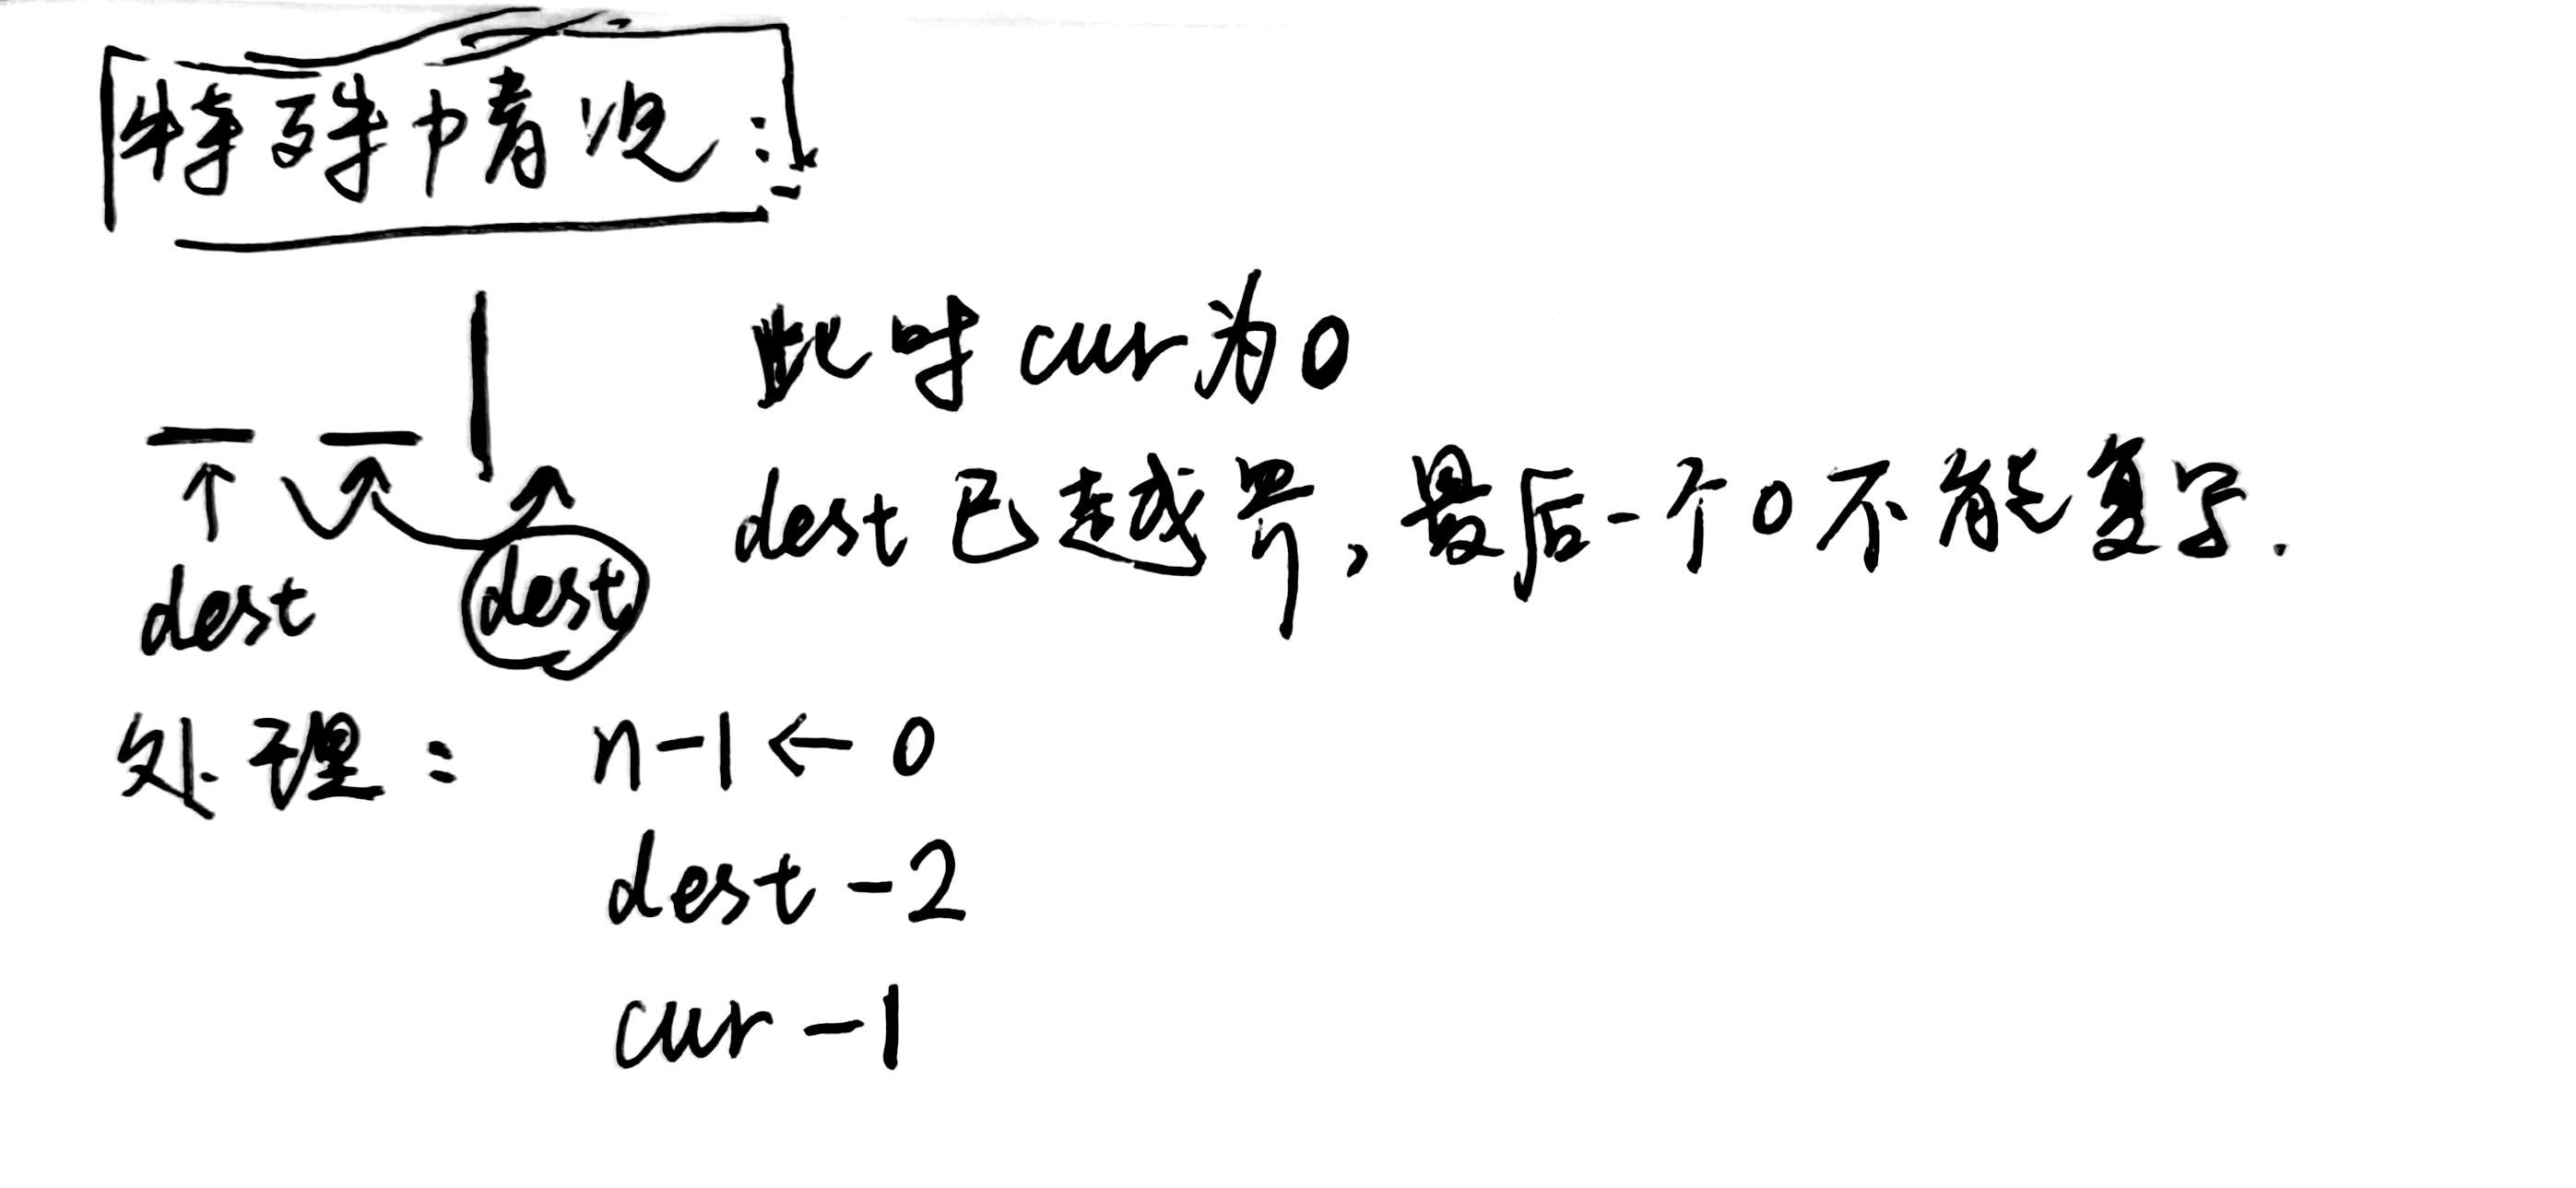 特殊情况:
此时cur为0
dest已越界,最后一个0不能复写.
dest dest
处理: n-1←0
dest-2
cur-1